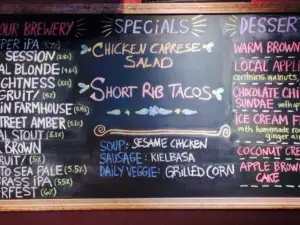 OUR BREWERY
PER IPA 5.7%
SESSION
AL BLONDE (4.8%)
GHTNESS (5%)
FRUIT/ (5%)
IN FARMHOUSE (5%)
STREET AMBER (5.1%)
AL STOUT (5.2%)
BROWN
RUIT/ (5%)
TO SEA PALE (5.5%)
RASS IPA (5.5%)
RFEST (6%)
SPECIALS
CHICKEN CAPRESE
SALAD
SHORT RIB TACOS
SOUP: SESAME CHICKEN
SAUSAGE: KIELBASA
DAILY VEGGIE: GRILLED CORN
DESSER
WARM BROWN
LOCAL APPLE
contains walnuts
CHOCOLATE CHI
SUNDAE with
ICE CREAM F
with homemade roo
ginger a
COCONUT CRE
APPLE BROWN
CAKE